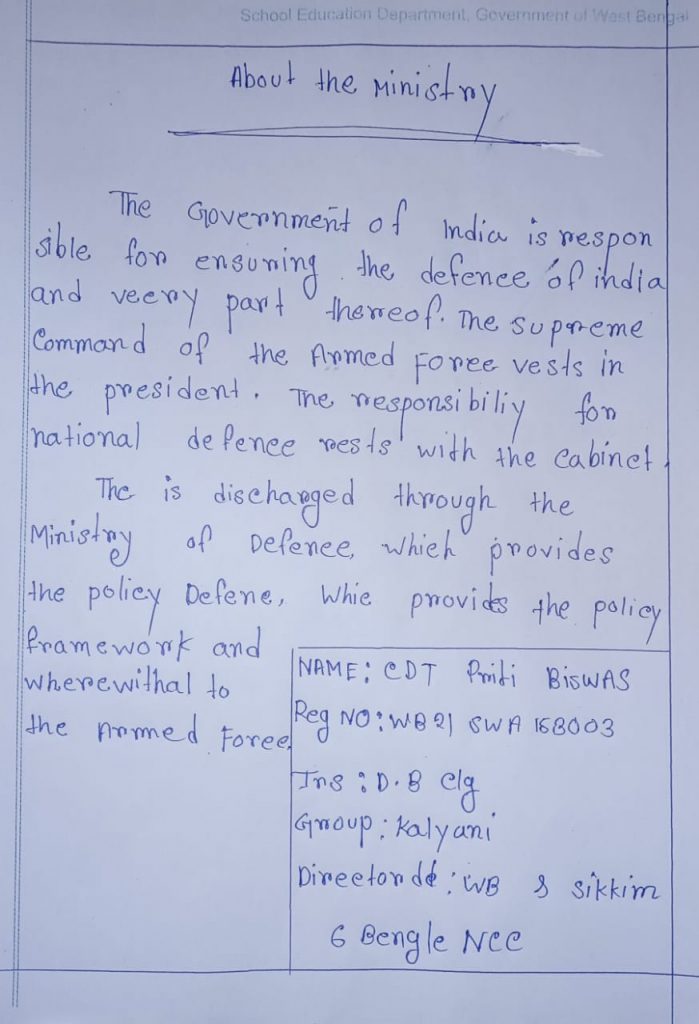 School Education Department, Government of West Bengal
About the Ministry
The Government of India is respon
sible for ensuring the defence of india
and veery part thereof. The supreme
Command of the Armed Force vests in
the president. The responsibiliy for
national defence rests with the cabinet.
The is discharged through the
Ministry of Defence, which provides
the policy Defene, Whie provides the policy
framework and
wherewithal to
the Armed Force.
NAME: CDT Priti BISWAS
Reg NO: WB21 SWA 168003
Ins : D.B clg
Group : Kalyani
Director : WB & sikkim
6 Bengle NCC